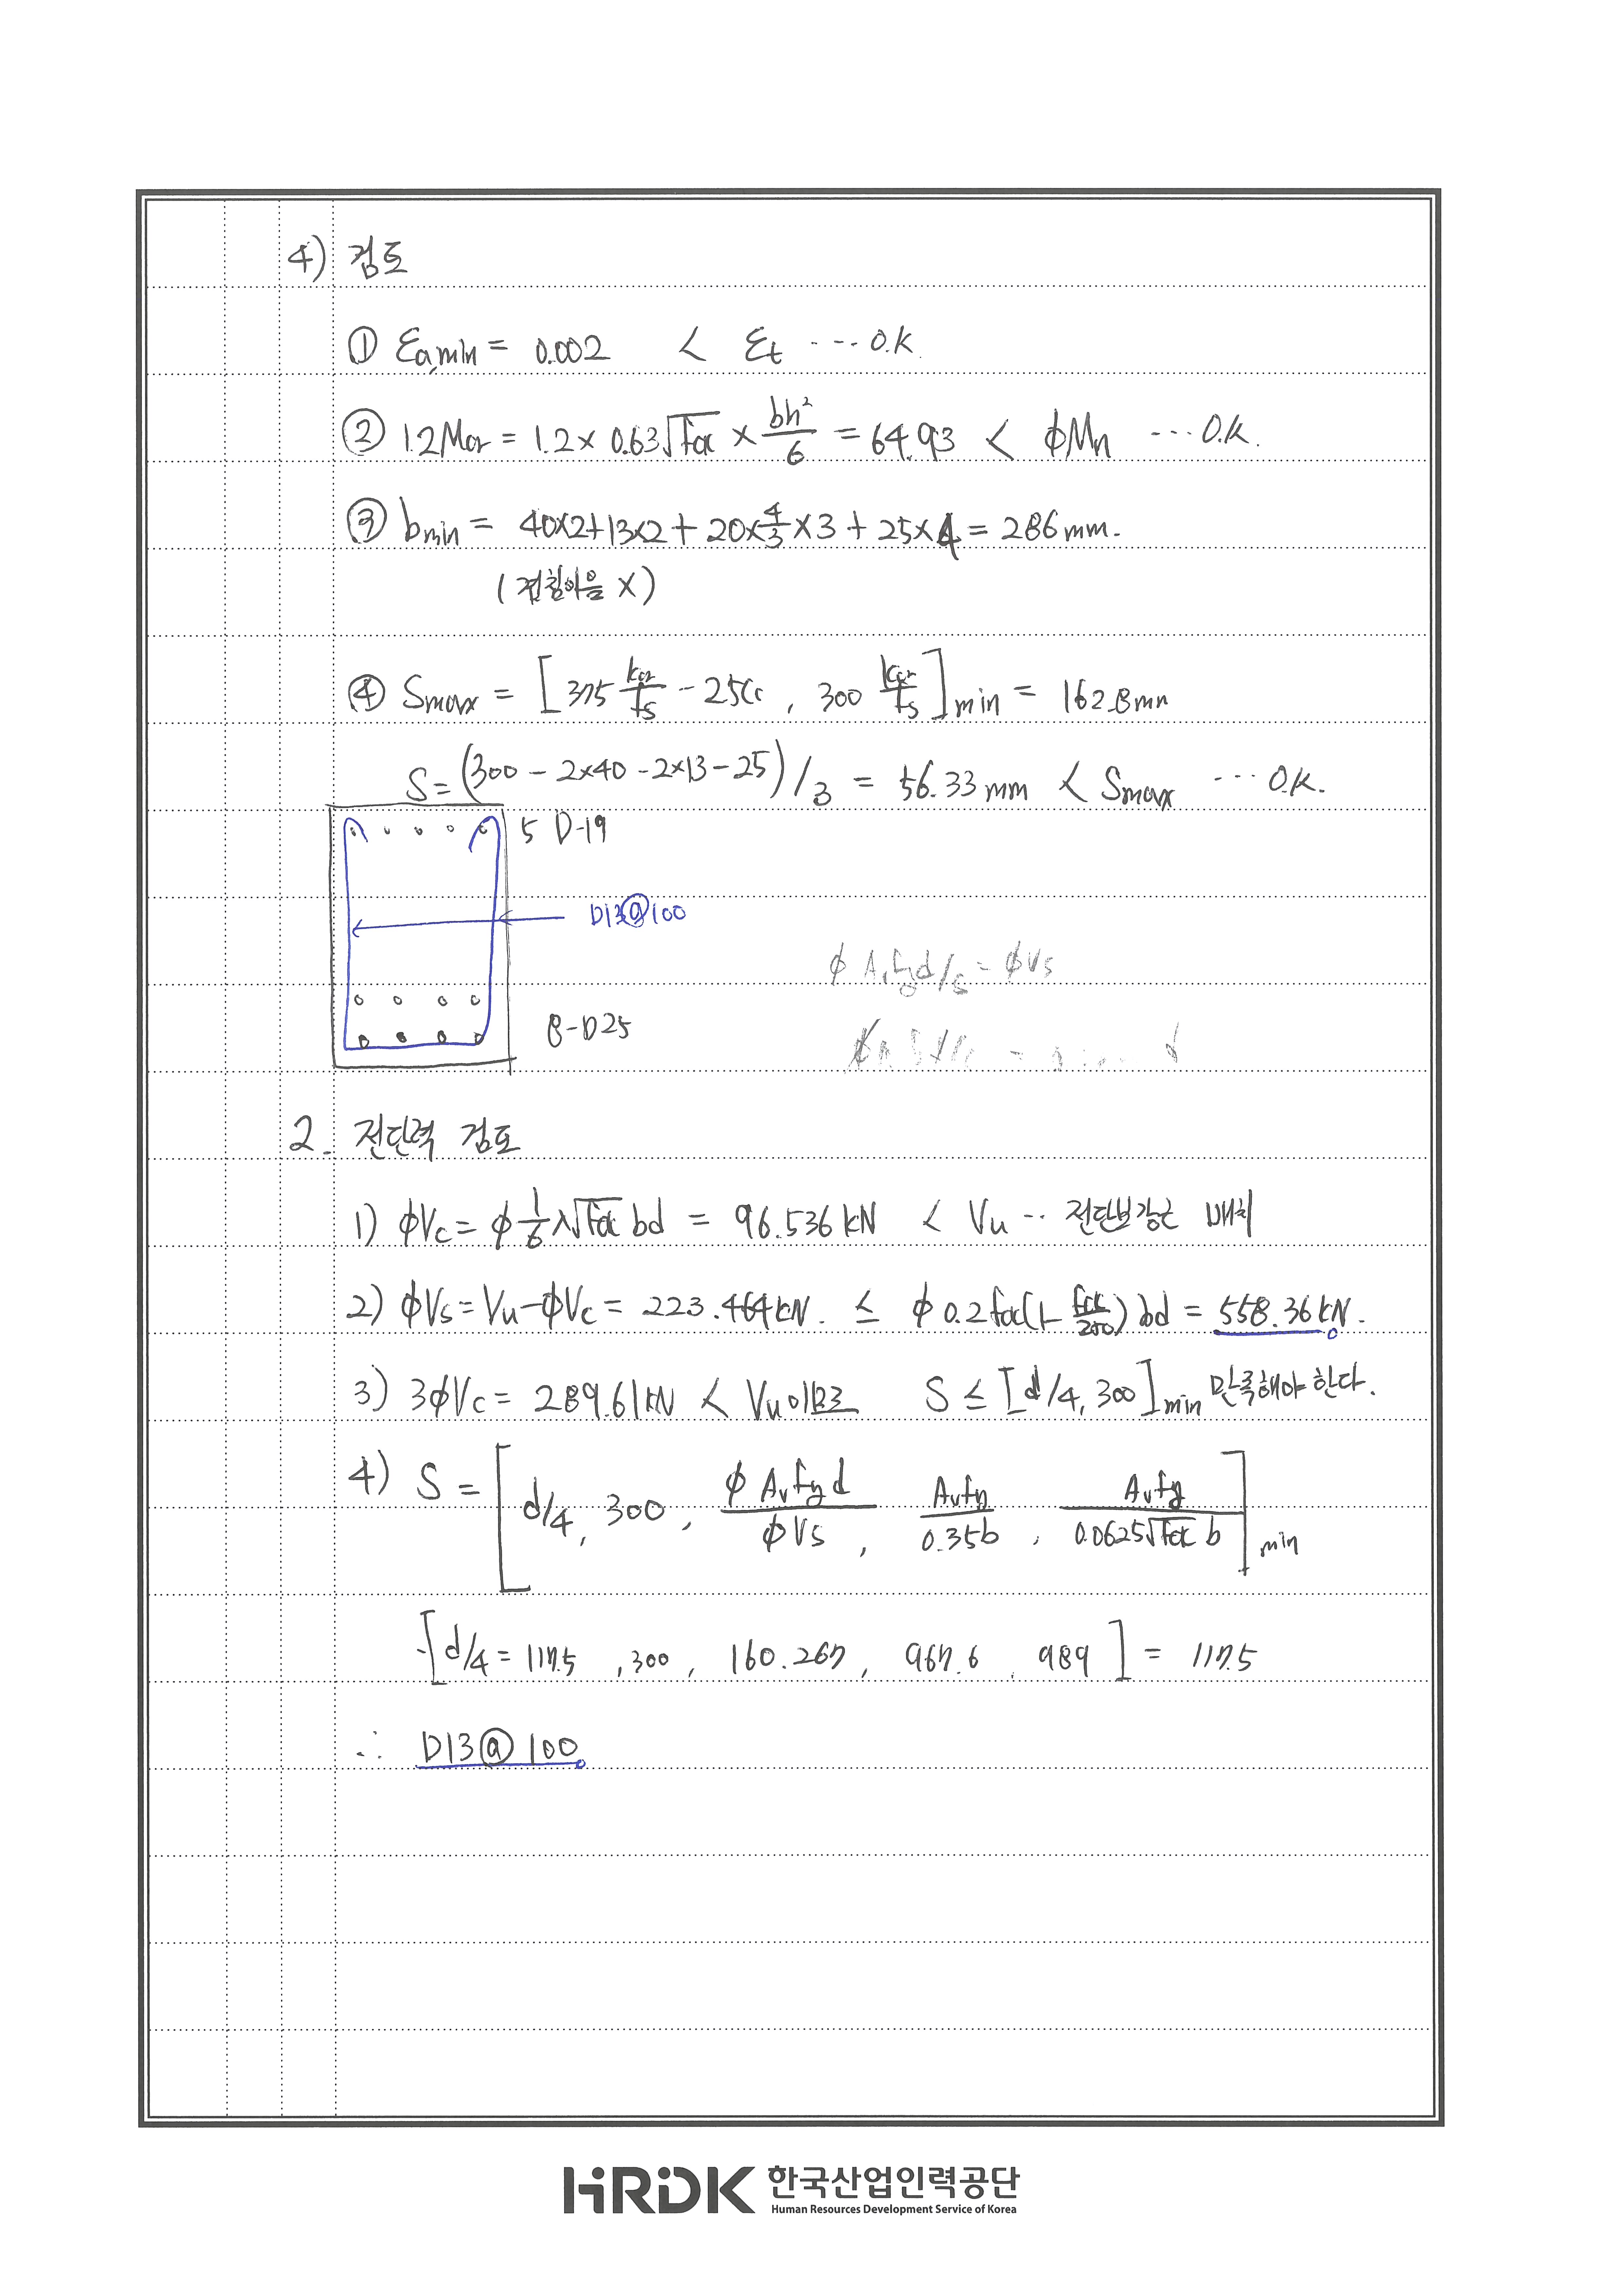 4) 검토
① εa,min = 0.002 < εt ··· O.K.
② 1.2Mcr = 1.2 × 0.63√fck × bh²/6 = 64.93 < ϕMn ··· O.K.
③ bmin = 40×2+13×2 + 20×4/3×3 + 25×4 = 286mm.
(겹침이음 X)
④ Smax = [375 kcr/fs - 2.5Cc , 300 kcr/fs]min = 162.8mm
S = (300 - 2×40 - 2×13 - 25)/3 = 56.33mm < Smax ··· O.K.
5 D-19
D13@100
ϕ Avfyd/s = ϕVs
8-D25
2. 전단력 검토
1) ϕVc = ϕ 1/6 λ√fck bd = 96.536 kN < Vu ·· 전단보강근 배치
2) ϕVs = Vu-ϕVc = 223.464kN. ≤ ϕ 0.2fck(1- fck/250) bd = 558.36kN.
3) 3ϕVc = 289.61kN < Vu이므로 S ≤ [d/4, 300]min 만족해야 한다.
4) S = [d/4, 300, ϕ Avfyd/ϕVs , Avfy/0.35b , Avfy/0.0625√fck b]min
[d/4 = 117.5 , 300 , 160.267 , 967.6 , 989] = 117.5
∴ D13@100
HRDK 한국산업인력공단
Human Resources Development Service of Korea